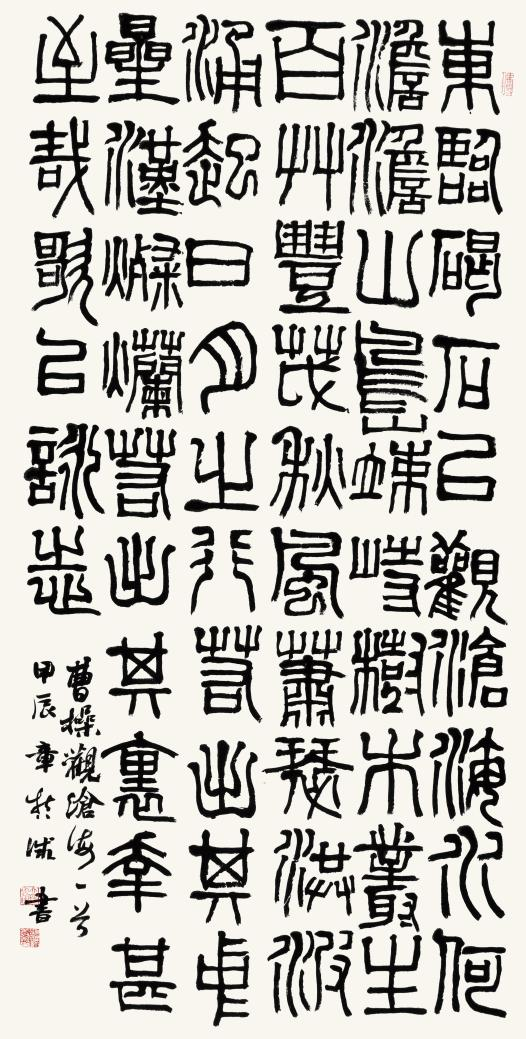 東臨碣石以觀滄海水何
澹澹山島竦峙樹木叢生
百艸豐茂秋風蕭瑟洪波
涌起日月之行若出其中
星漢燦爛若出其裏幸甚
至哉歌以詠志
曹操觀滄海一首
甲辰章於 書